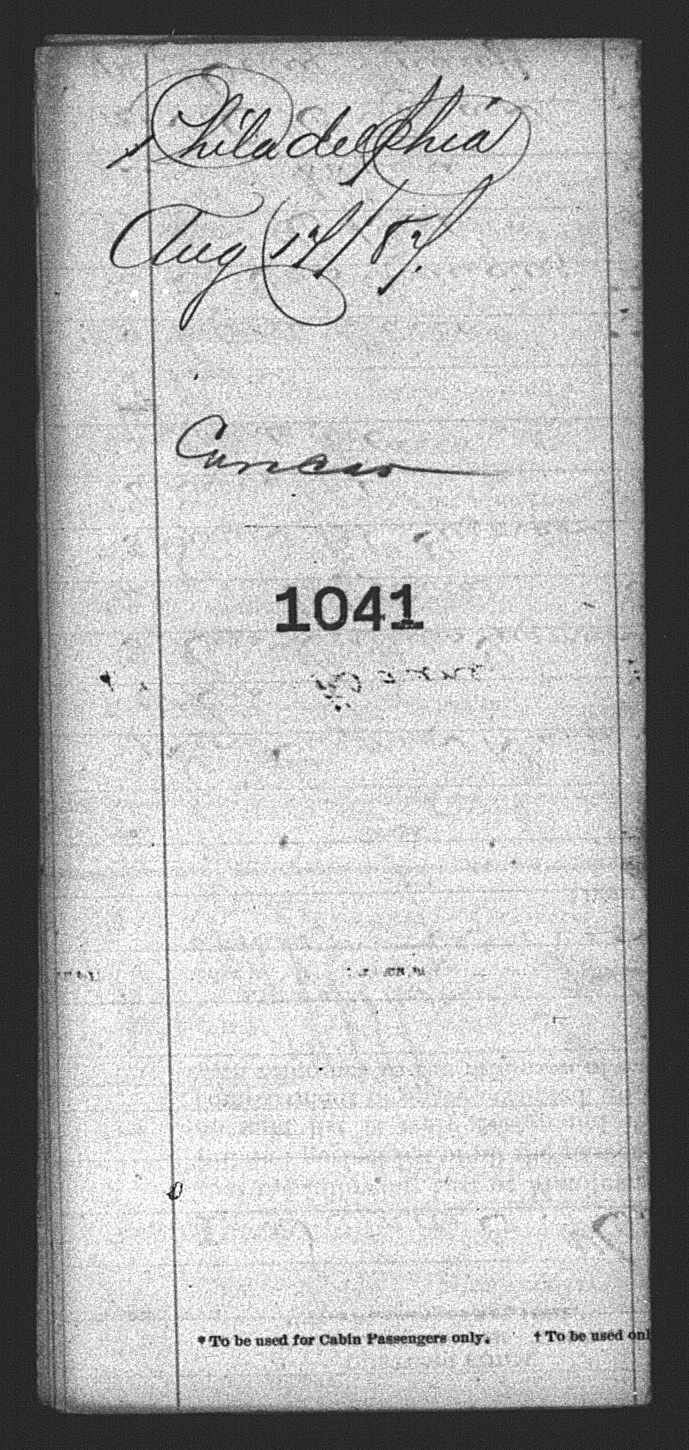 Philadelphia
Aug 17/87.
1041
* To be used for Cabin Passengers only.
† To be used onl